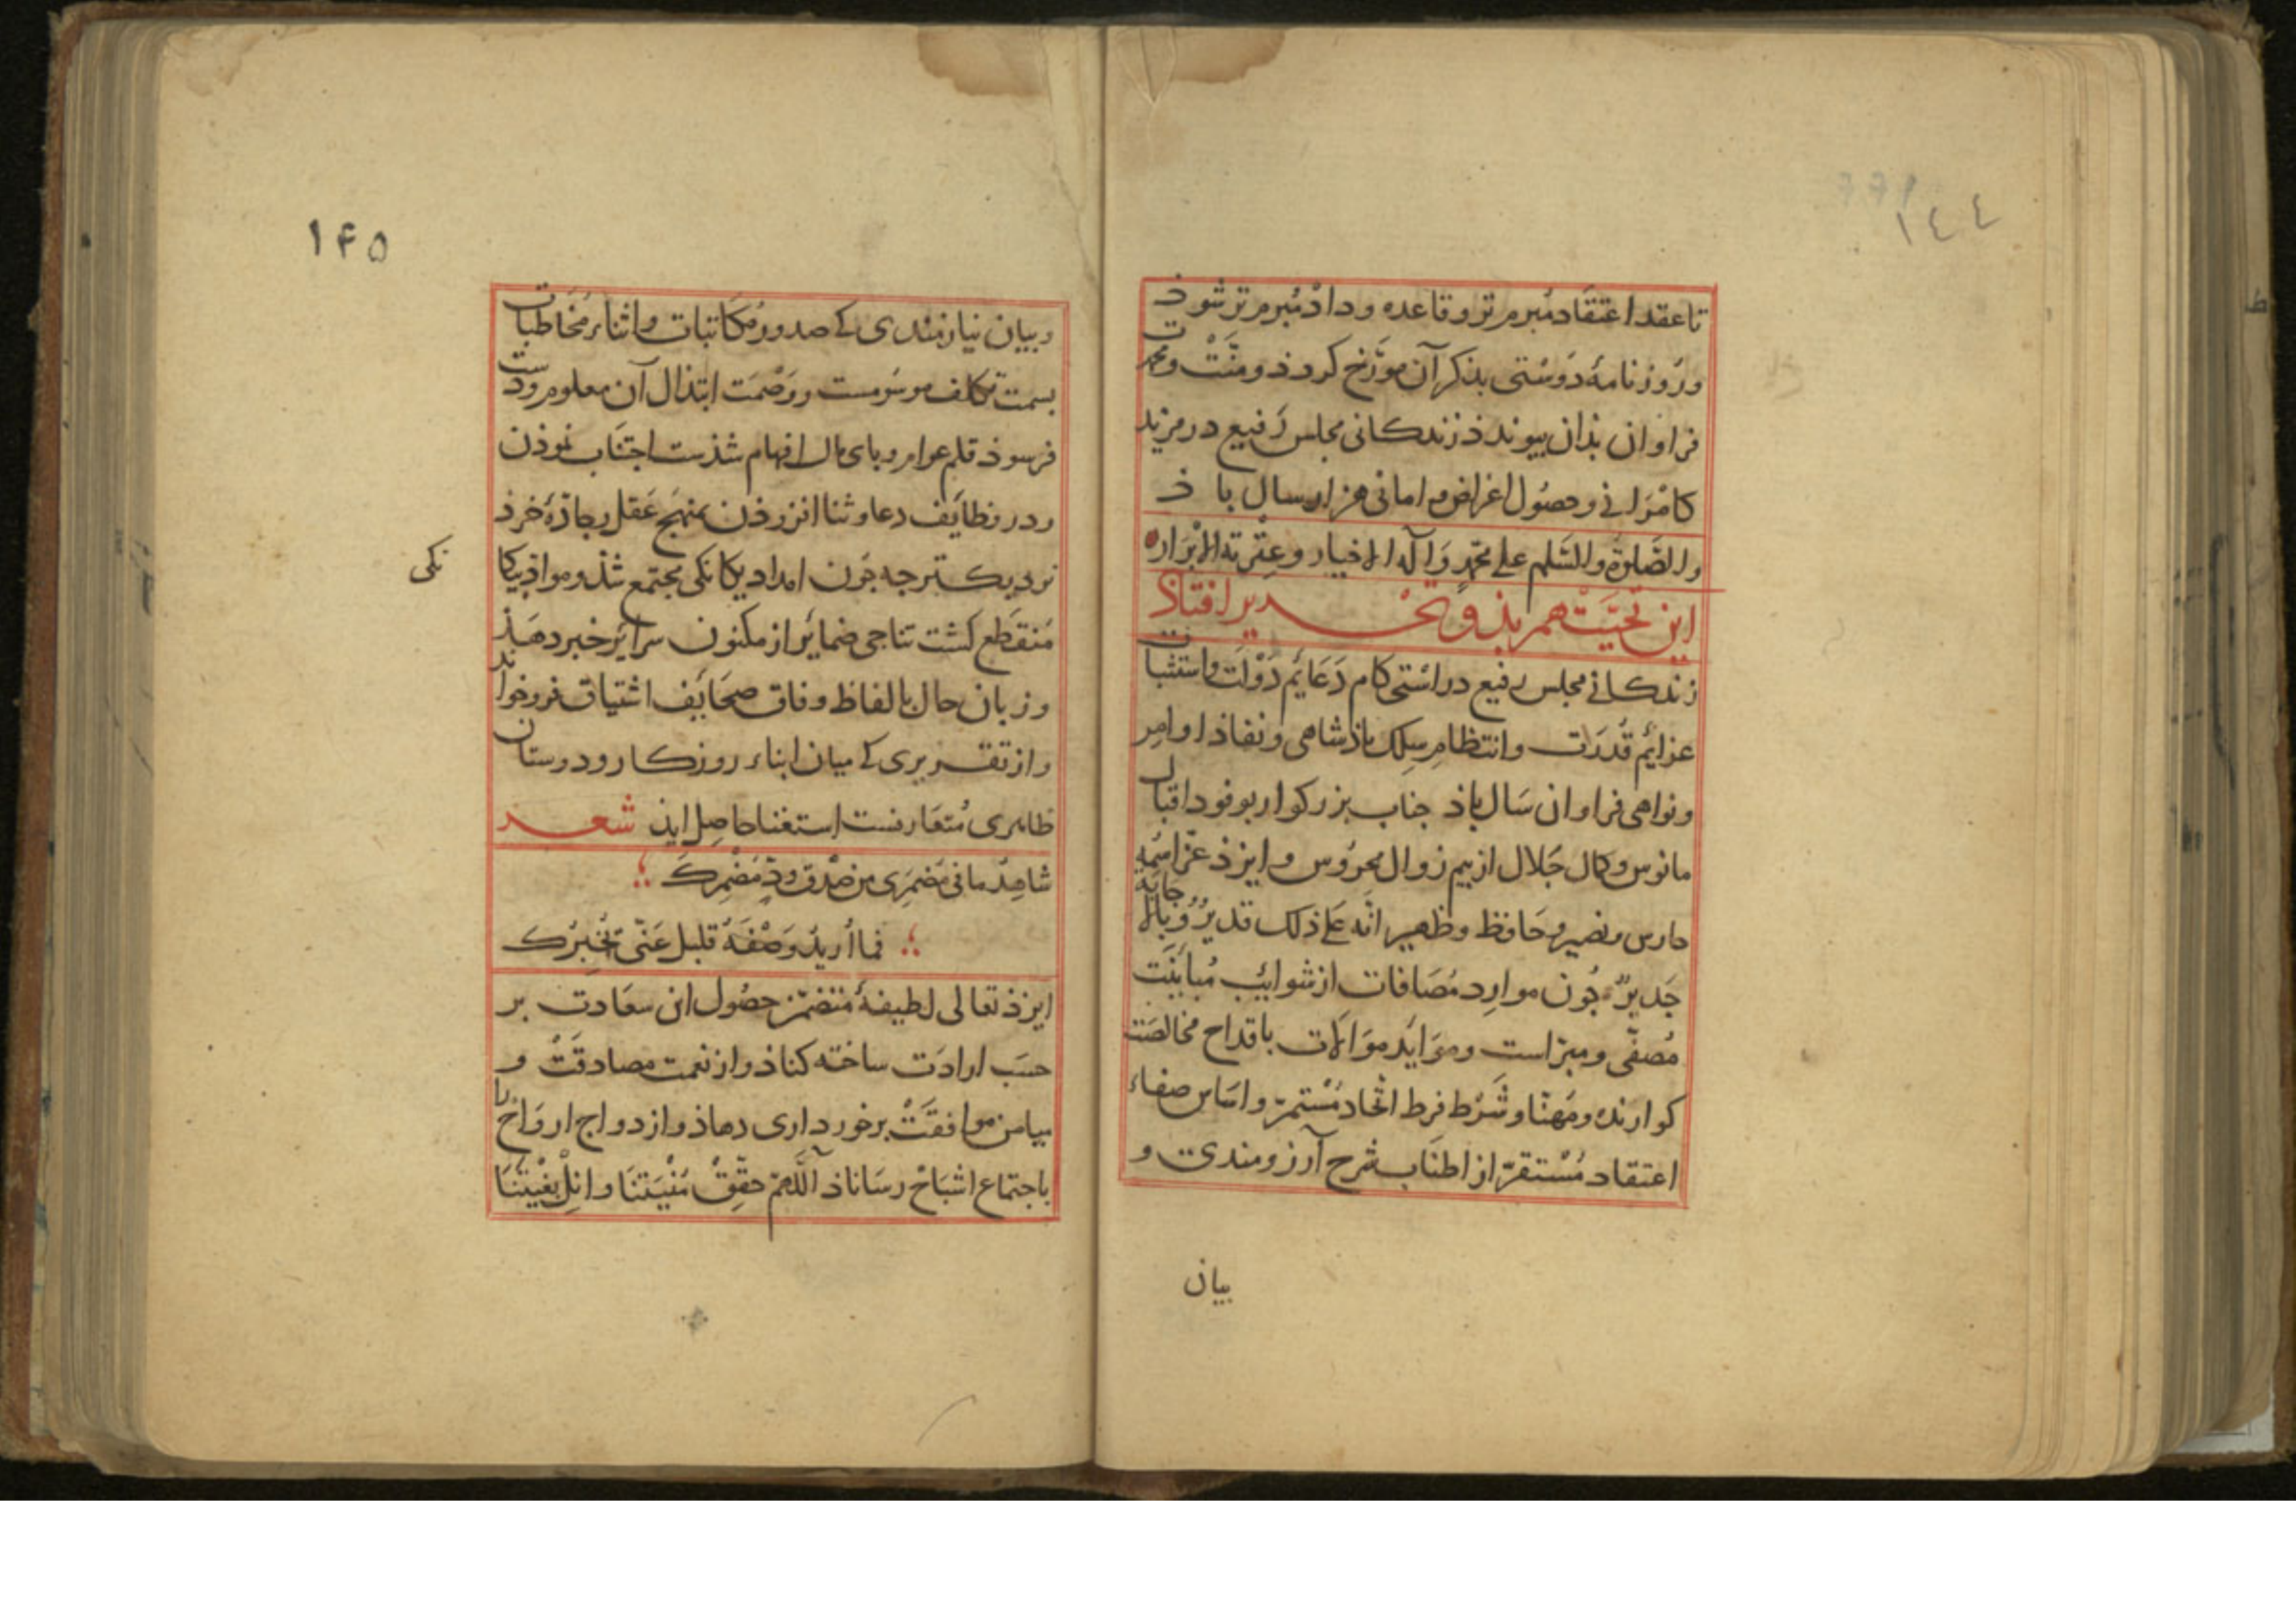 ١٤٤
تا عقد اعتقاد مبرم تر و قاعده وداد مبرم تر شوذ
و روزنامهٔ دوستی بذکر آن مورّخ کردد و منّت و محمدت
فراوان بذان پیوندد زندکانی مجلس رفیع در مزید
کامرانی و حصول اغراض و امانی هزار سال باذ
والصَّلوة والسَّلم علی محمّد وَآله الاخیار وعِتْرته الابْرَار
این تحیّت هم بذو تحدیر افتاذ
زندکانی مجلس رفیع در اشتی کام دَعَایم دَوْلت و استثبات
عزایم قُدرَت و انتظام سِلک باذشاهی و نفاذ اوامِر
و نواهی فراوان سَال باذ جناب بزرکوار بوفود اقبال
مانوس و کمال جَلال از بیم زوال محروس و ایزذ عزّ اسمُه
حارس و نصیر و حَافظ و ظهیر انّه عَلی ذلک قدیرٌ وَ بالاجابة
جَدیرٌ جُون موارِد مُصَافات از شوایب مُبایَنَت
مُصفّی و مبرّا است و مَوَایِد مَوَالات باقداح مخالصَت
کوارنده و مُهنّا و شَرْط فرط اتّحاد مُسْتمرّ و اسَاس صفاء
اعتقاد مُسْتقرّ از اطنَاب شرح آرزومندی و
بیان
١۴۵
و بیان نیازمندی که صدور مکَاتبات و اثناء مُخَاطبات
بسمت تکلف موسوُمست و وَصْمَت ابتذال آن معلوم و دست
فرسوذ قلم عوام و بای مال افهام شذست اجتنَاب نموذن
و در وظایَف دعا و ثنا افزوذن بمنهَج عَقل و جادّهٔ خرذ
نزدیک تر جه جون امداد یکانکی مجتمع شذ و موادّ بیکا
نکی
مُنقَطع کشت تناجی ضمایَر از مکنون سرایَر خبر دهَذ
و زبان حال بالفاظ وفاق صحَایَف اشتیاق فرو خواند
و از تقریری که میان ابناء روزکار و دوستان
ظاهری مُتعَارفست استغنا حاصل ایذ شعر
شاهِدُ ما فی مُضمَرِی من صْدق ودّ مُضْمِرِکَ
فما اُریدُ وَصْفَهُ قلبک عَنّی یُخبِرُک
ایزذ تعالی لطیفهٔ متضمّن حصُول این سعَادت بر
حسَب ارادَت ساخته کناذ و از نعمت مصادقَتْ و
میامن موافقَتْ برخورداری دهاذ و ازدواج ارواح را
باجتماع اشبَاحْ رسَاناذ اَللّهمّ حقّقْ مُنْیَتنَا و انِلْ بُغْیَتنَا